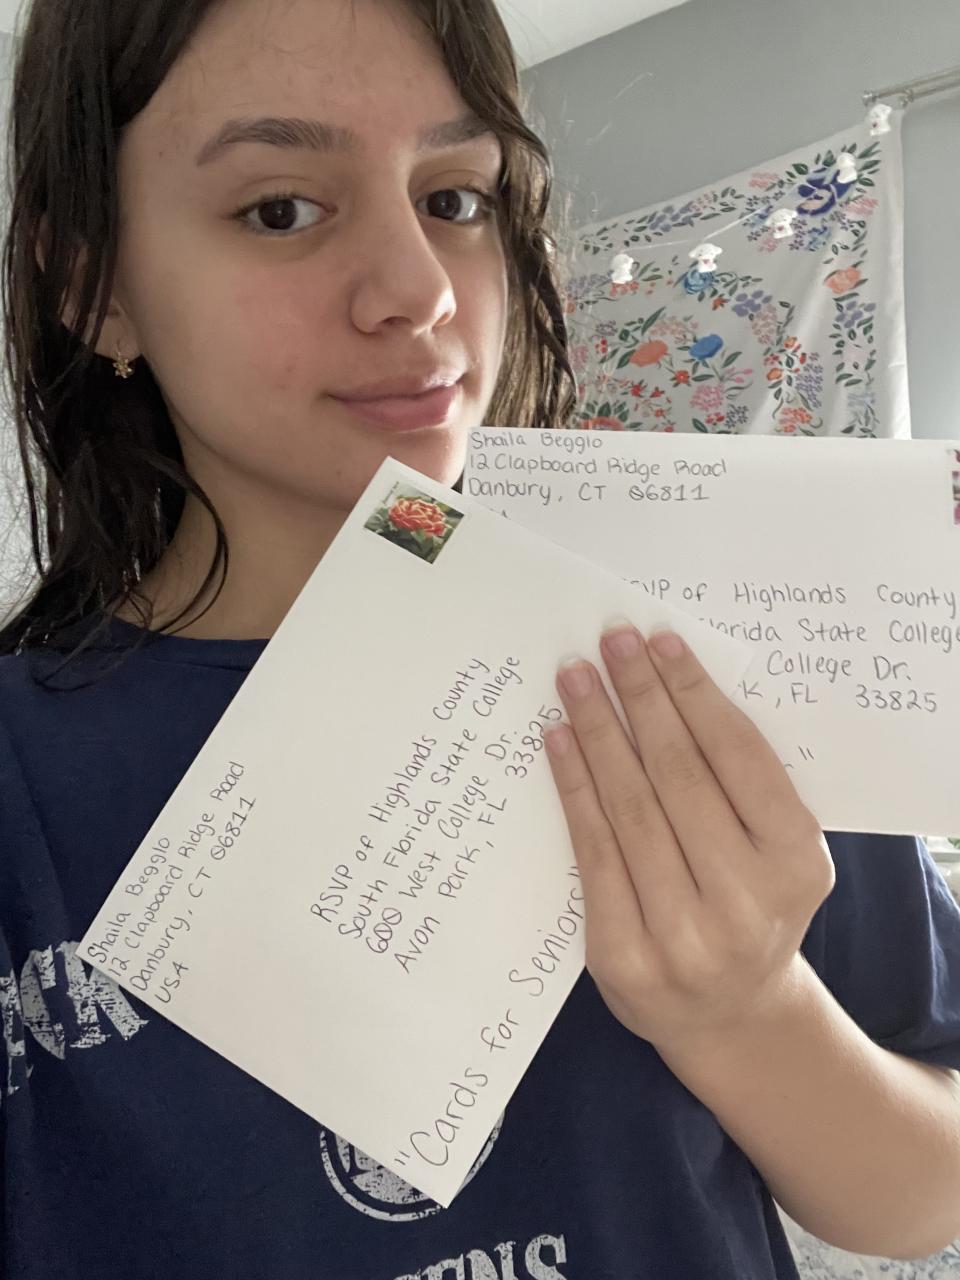 Shaila Begglo
12 Clapboard Ridge Road
Danbury, CT 06811
of Highlands County
State College
College Dr.
, FL 33825
Shaila Begglo
12 Clapboard Ridge Road
Danbury, CT 06811
USA
RSVP of Highlands County
South Florida State College
600 West College Dr.
Avon Park, FL 33825
"Cards for Seniors"